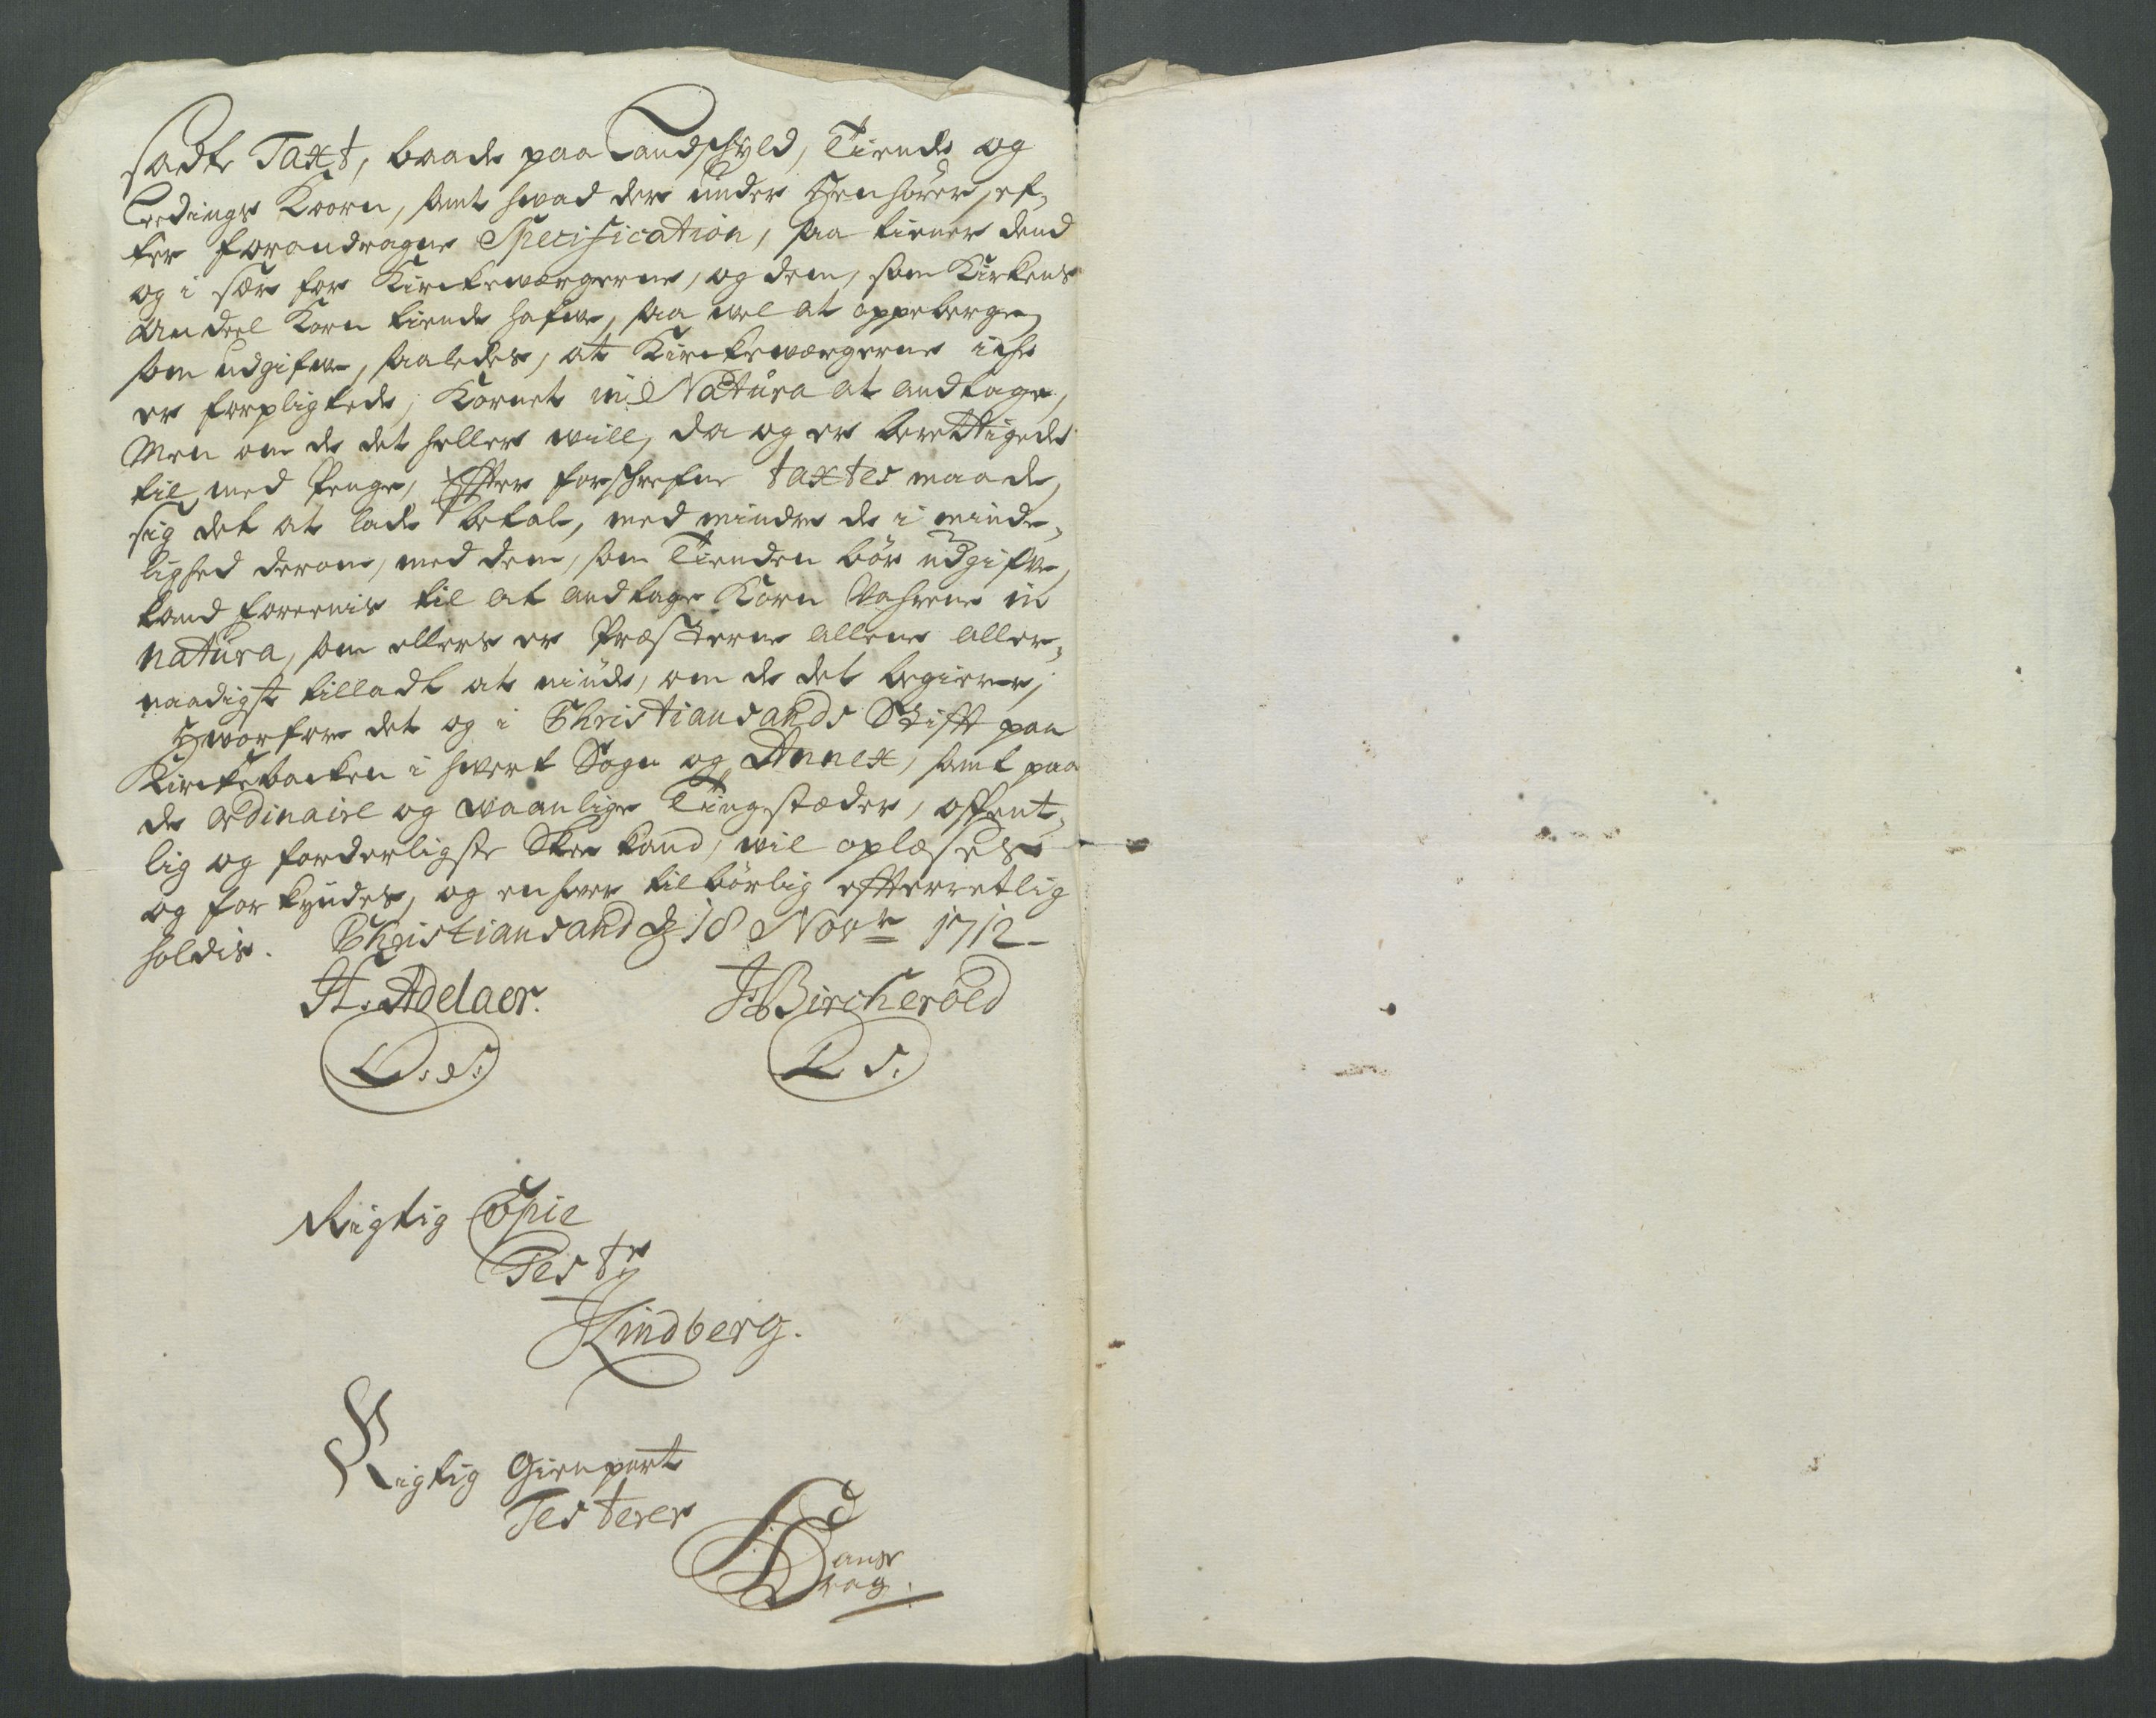 sadte Taxt, baade paa Landschyld, Tiende og
Leedings Koorn, samt hvad der under Henhörer, ef-
ter forandragne Specification, saa tiener dend
og i sær for Kirckeværgerne, og dem, som Kirkens
Andeel Korn tiende hafve, saa vel at oppeberge,
som udgifve, saaledes, at Kirckeværgerne iche
er forpligtede, Kornet in Natura at andtage,
Men om de det heller will, da og er berettigede
til, med Penge, Effter forschrefne taxtes maade,
sig det at lade betale, med mindre de i minde-
lighed derom, med dem, som Tienden bör udgifve,
kand foreenis til at andtage Korn Vahrene in
natura, som ellers er Præsterne allene aller-
naadigst tilladt at niude, om de det begierer;
Hworfore det og i Christiansands Stifft paa
Kirckebacken i hvert Sogn og Annex, samt paa
de ordinaire og waanlige Tingstæder, offent-
lig og forderligste Skee kand, vil oplæses
og forkyndes, og enhver tilbörlig efterretlig
holdis. Christiansand d 18 Novr 1712
H. Adelaer. JBircherod
L. S. L. S.
Rigtig Copie
Test
JLindberg.
Rigtig Gienpart
Testerer
Hans
Drag